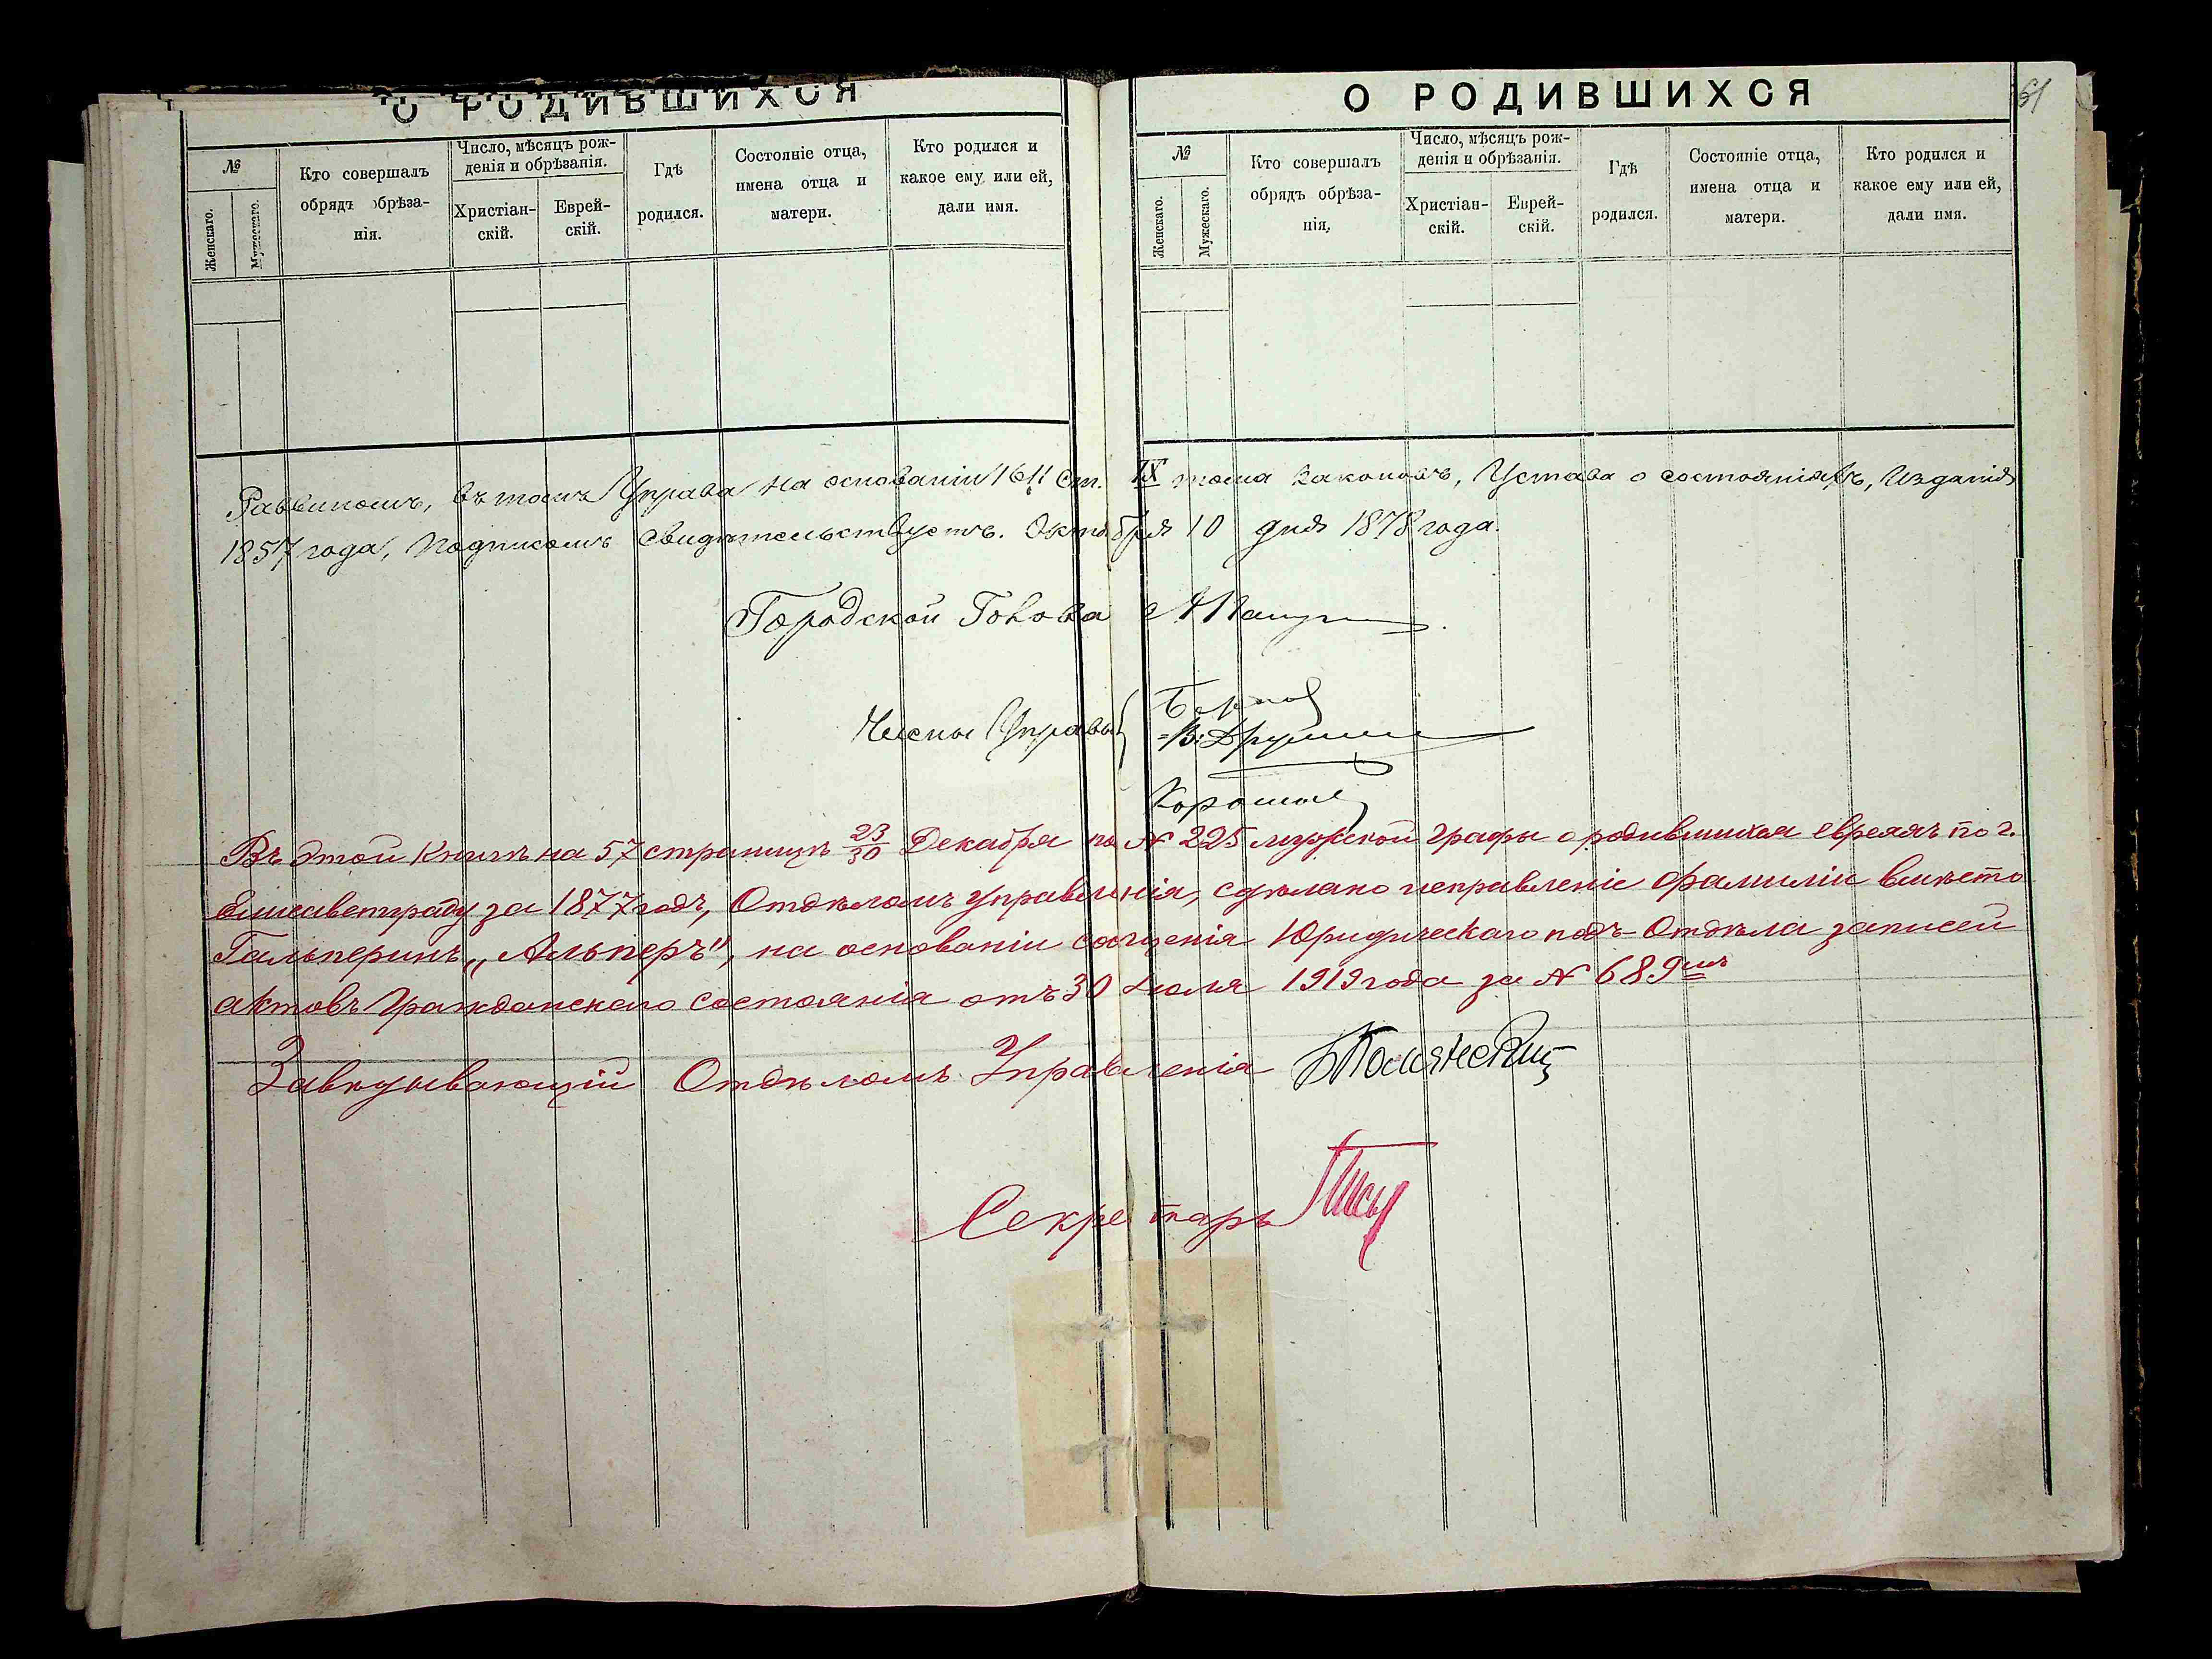 О РОДИВШИХСЯ
№
Женскаго.
Мужескаго.
Кто совершалъ
обрядъ обрѣза-
нія.
Число, мѣсяцъ рож-
денія и обрѣзанія.
Христіан-
скій.
Еврей-
скій.
Гдѣ
родился.
Состояніе отца,
имена отца и
матери.
Кто родился и
какое ему или ей,
дали имя.
О РОДИВШИХСЯ
61
№
Женскаго.
Мужескаго.
Кто совершалъ
обрядъ обрѣза-
нія,
Число, мѣсяцъ рож-
денія и обрѣзанія.
Христіан-
скій.
Еврей-
скій.
Гдѣ
родился.
Состояніе отца,
имена отца и
матери.
Кто родился и
какое ему или ей,
дали имя.
Раввиномъ, въ томъ Управа на основаніи 1611 ст. IX тома Законовъ, Устава о состояніяхъ, Изданія
1857 года, подписомъ свидѣтельствуетъ. Октября 10 дня 1878 года.
Городской Голова
Члены Управы
Въ этой книгѣ на 57 страницѣ 23/30 Декабря по № 225 мужской графы о родившихся евреяхъ по г.
Елисаветграду за 1877 годъ, Отдѣломъ Управленія, сдѣлано исправленіе фамиліи вмѣсто
Гальперинъ „Альперъ", на основаніи сообщенія Юридическаго подъ-Отдѣла записей
актовъ Гражданскаго состоянія отъ 30 Іюля 1919 года за № 689мъ
Завѣдывающій Отдѣломъ Управленія
Секретарь